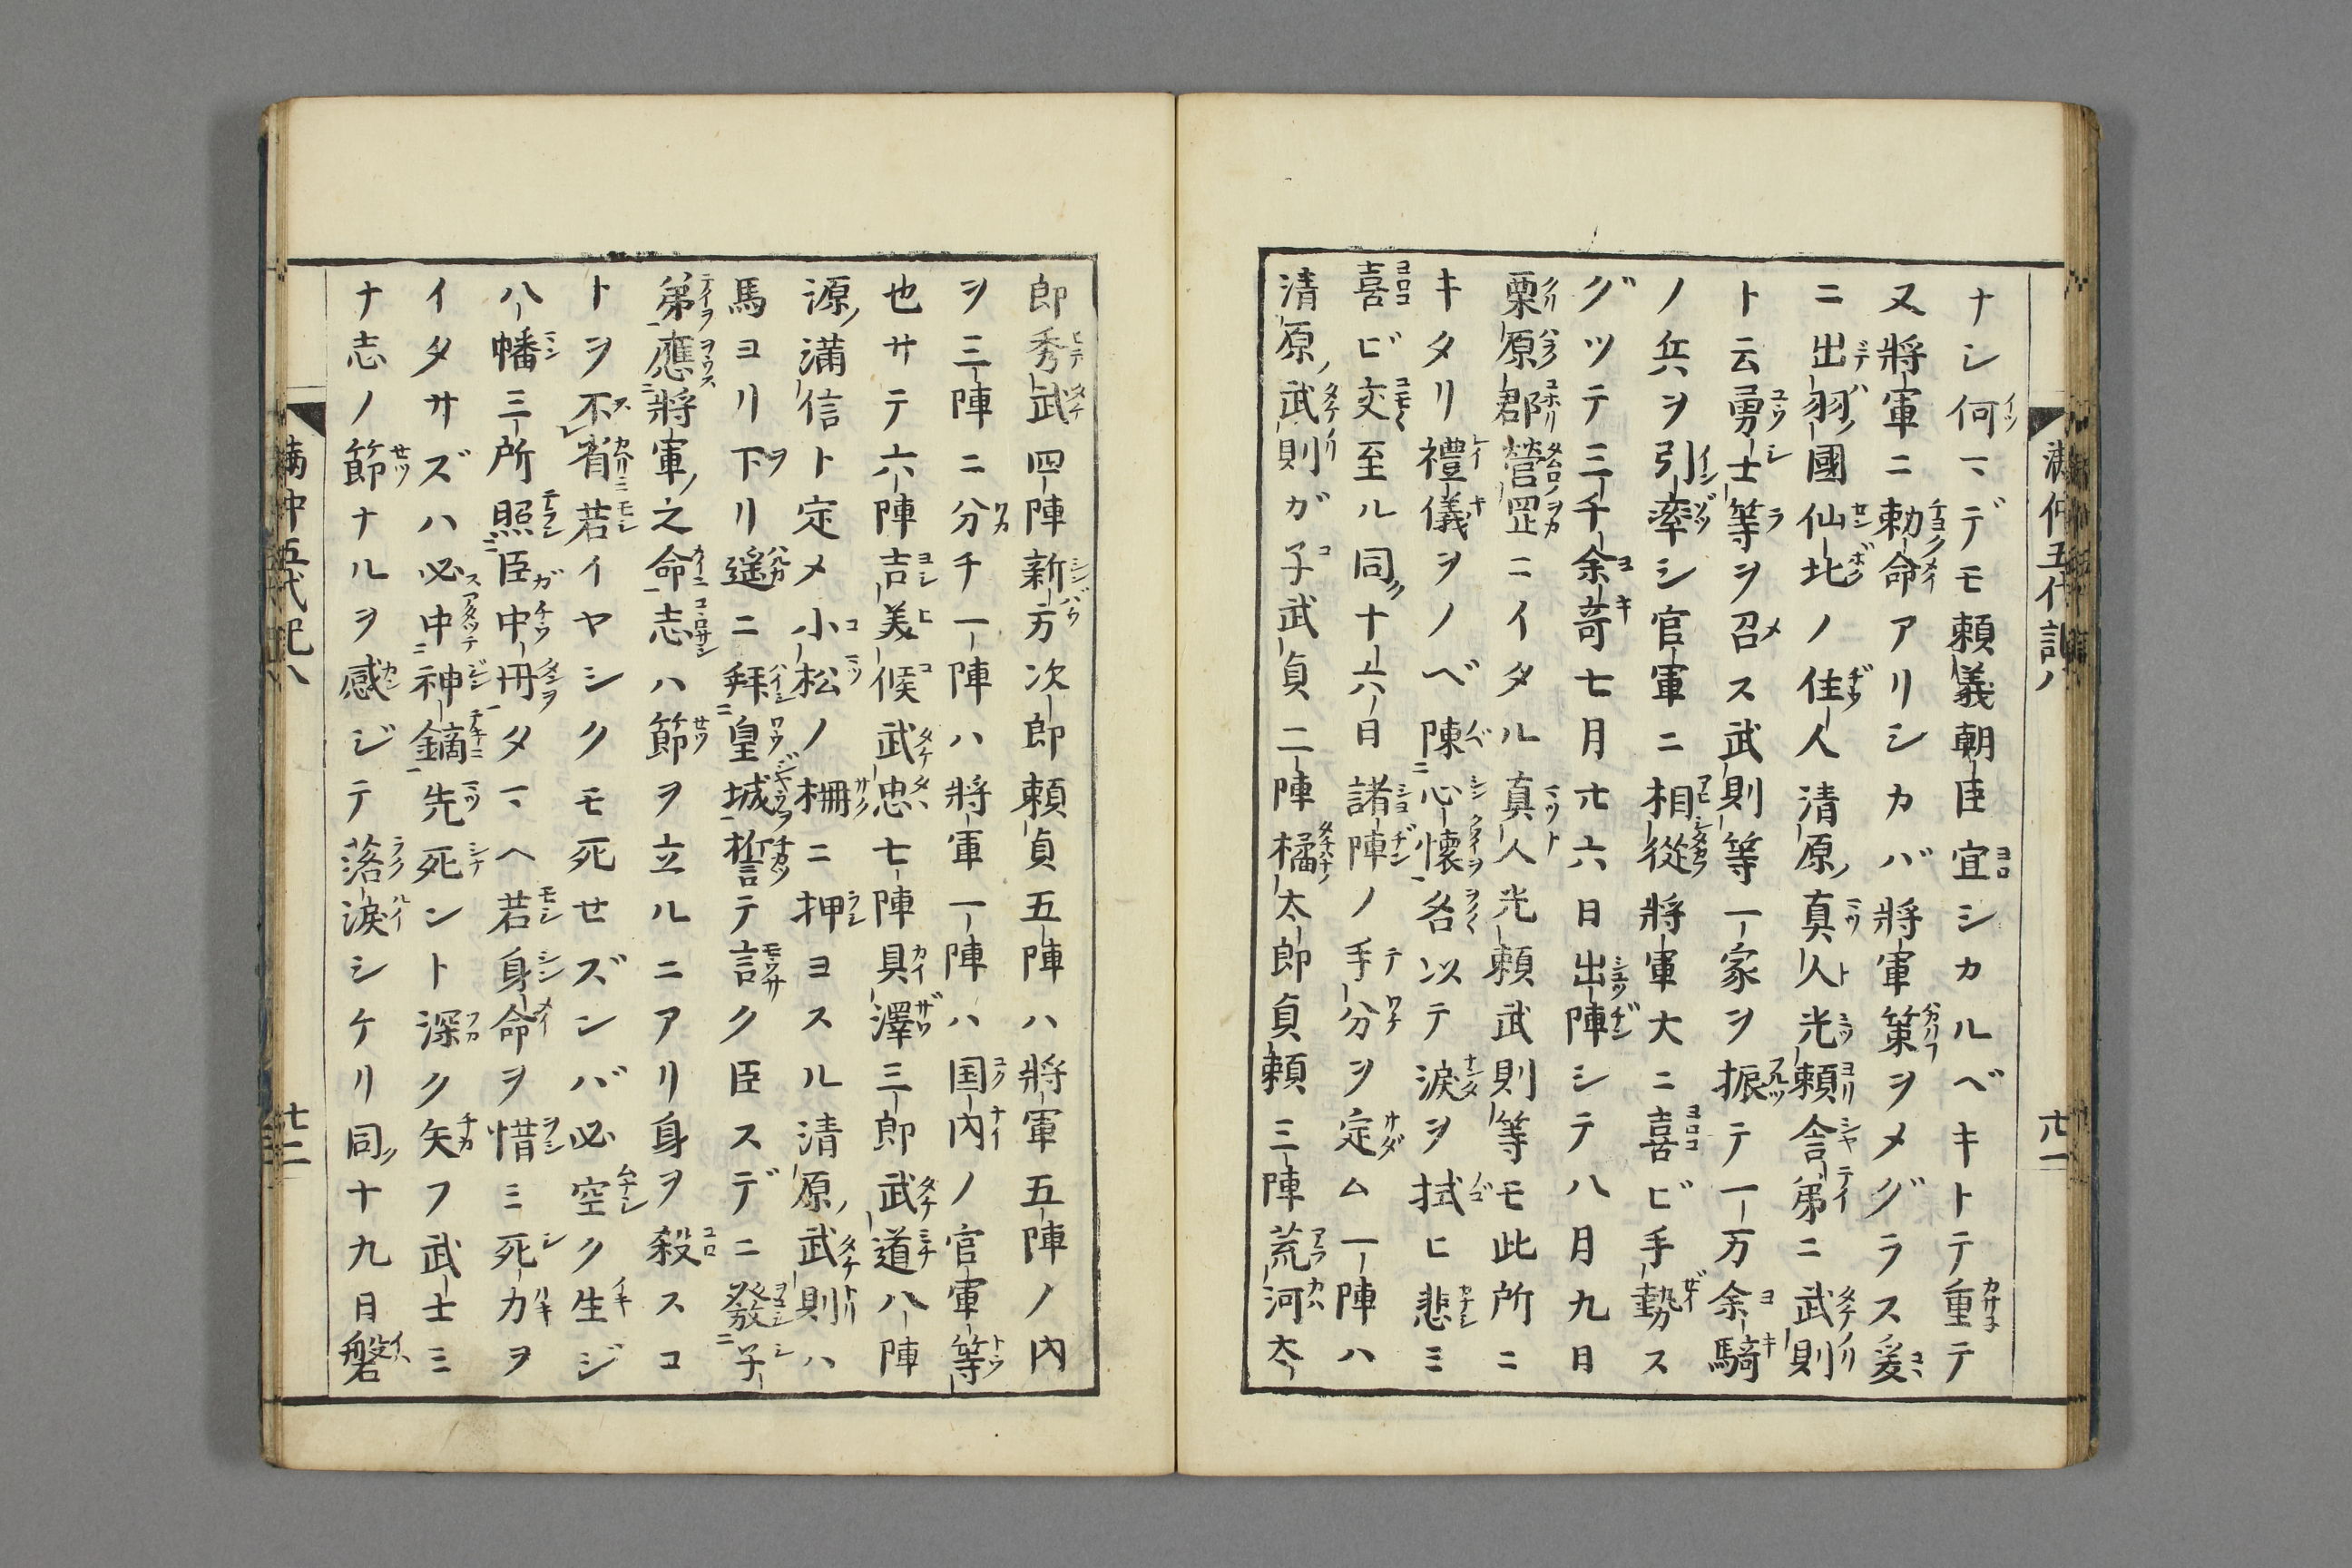 ナシ何マデモ頼義朝臣宜シカルベキトテ重テ
又將軍ニ勅命アリシカバ將軍策ヲメグラス爰
ニ出羽ノ國仙北ノ住人清原ノ真人光頼舎弟ニ武則
ト云勇士等ヲ召ス武則等一家ヲ振テ一万余騎
ノ兵ヲ引率シ官軍ニ相從將軍大ニ喜ビ手勢ス
グツテ三千余竒七月廿六日出陣シテ八月九日
栗原郡營罡ニイタル真人光頼武則等モ此所ニ
キタリ禮儀ヲノベ陳心懐各以テ涙ヲ拭ヒ悲ミ
喜ビ交至ル同ク十六日諸陣ノ手分ヲ定ム一陣ハ
清原ノ武則ガ子武貞二陣橘太郎貞頼三陣荒河太
郎秀武四陣新方次郎頼貞五陣ハ將軍五陣ノ内
ヲ三陣ニ分チ一陣ハ將軍一陣ハ国内ノ官軍等
也サテ六陣吉美候武忠七陣貝澤三郎武道八陣
源ノ満信ト定メ小松ノ柵ニ押ヨスル清原ノ武則ハ
馬ヨリ下リ遥ニ拜皇城誓テ言ク臣スデニ發子
弟應將軍ノ之命志ハ節ヲ立ルニアリ身ヲ殺スコ
トヲ不省若イヤシクモ死セズンバ必空ク生ジ
八幡三所照臣中丹タマヘ若身命ヲ惜ミ死力ヲ
イタサズハ必中神鏑先死ント深ク矢フ武士ミ
ナ志ノ節ナルヲ感ジテ落涙シケリ同ク十九日磐
満仲五代記八
廿一
満仲五代記八
廿二